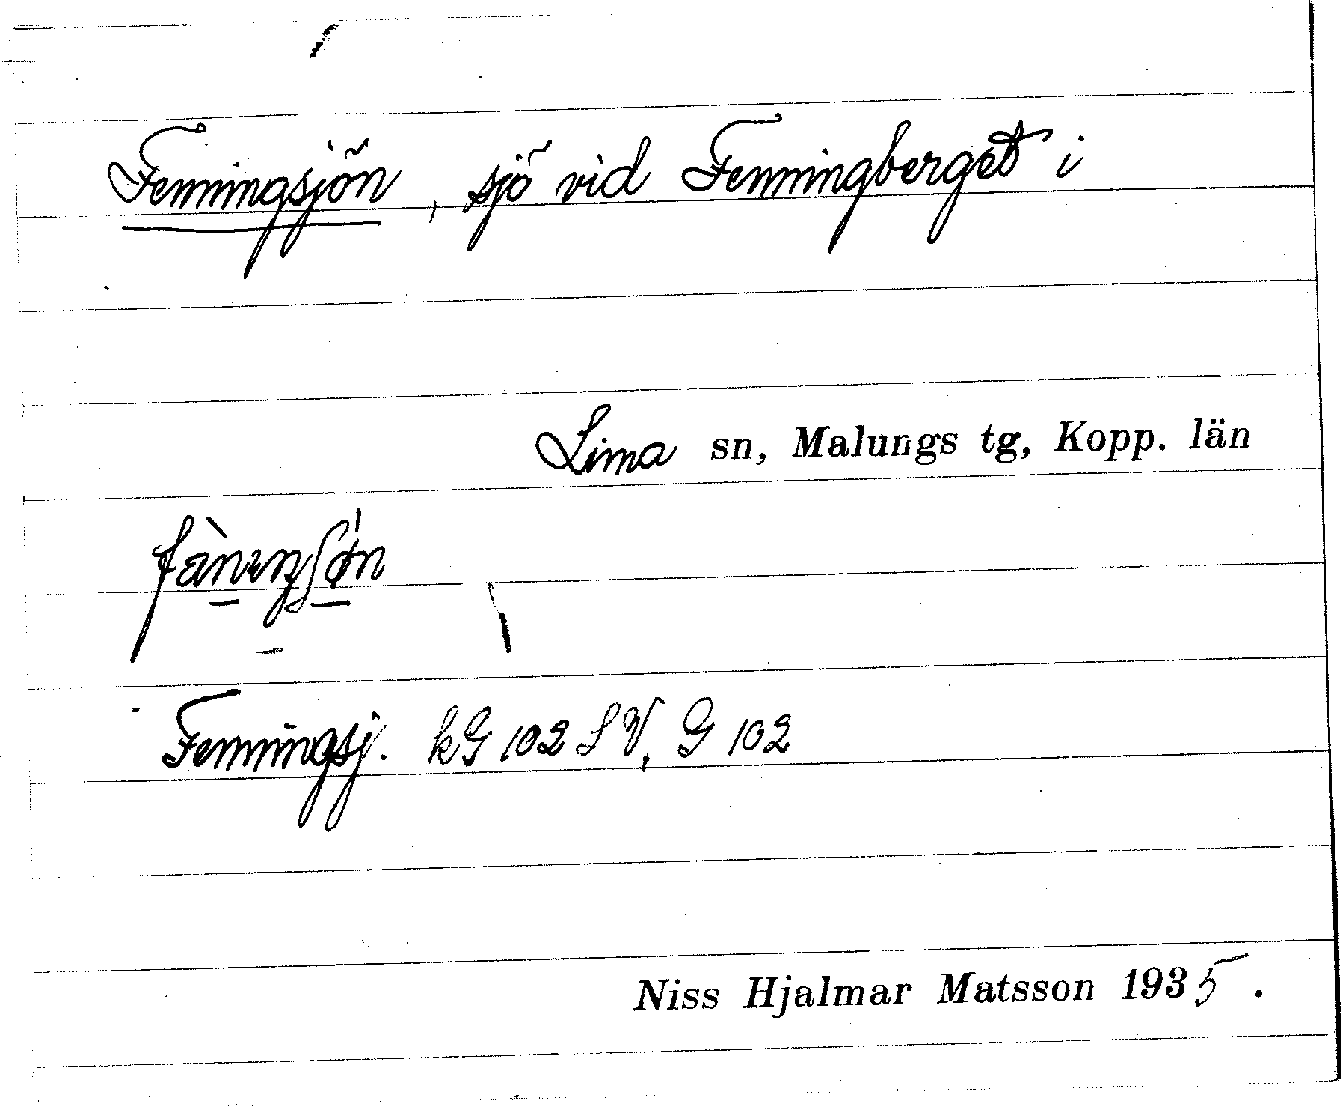 Fenningsjön, sjö vid Fenningberget i
Lima sn, Malungs tg, Kopp. län
Fenningsj. kG 102 SV, G 102
Niss Hjalmar Matsson 1935.